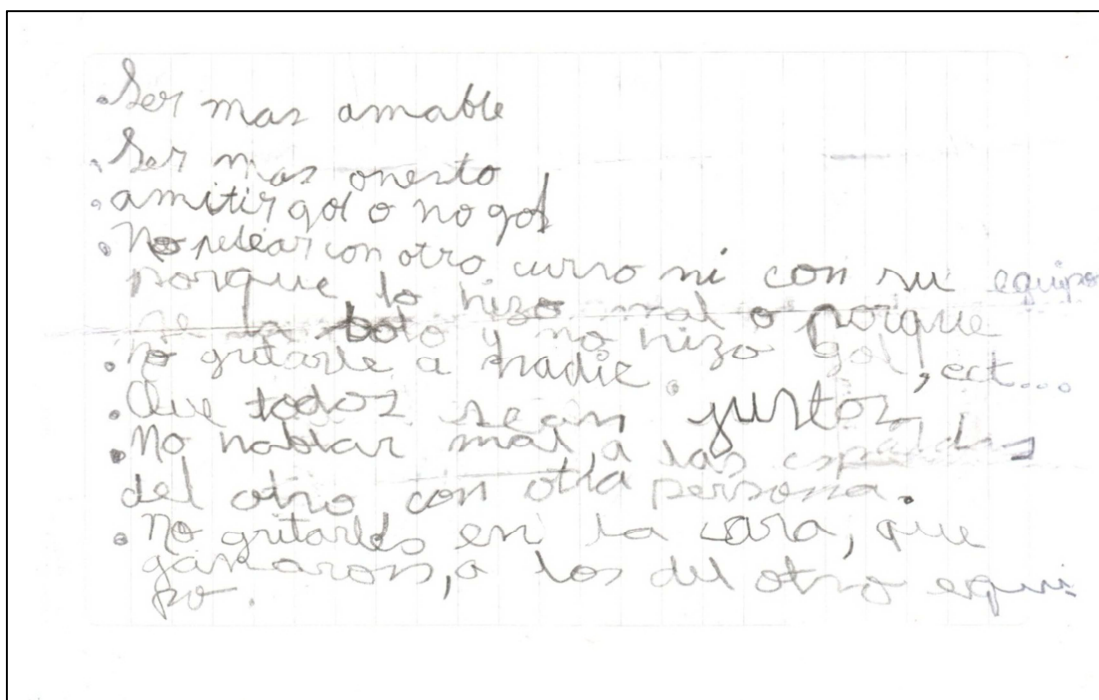 .Ser mas amable
.Ser mas onesto
.amitir gol o no gol
.No pelear con otro curso ni con su equipo
porque lo hizo mal o porque
se la boto y no hizo gol, ect...
.no gritarle a nadie.
.Que todos sean justos
.No hablar mal a las espaldas
del otro con otra persona.
.No gritarles en la cara, que
ganaron, a los del otro equi
po.